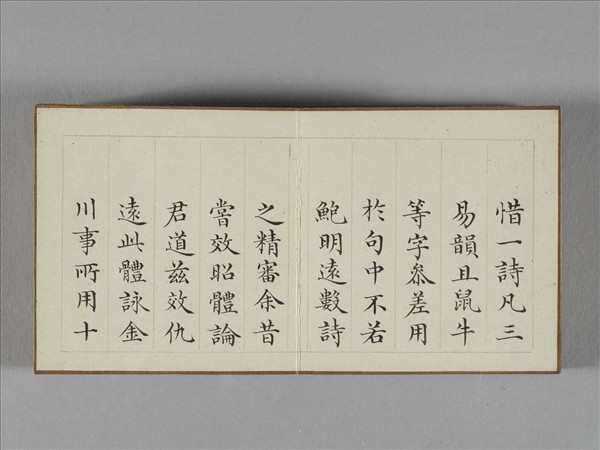 惜一詩凡三
易韻且鼠牛
等字叅差用
於句中不若
鮑明遠數詩
之精審余昔
嘗效昭體論
君道兹效仇
遠此體詠金
川事所用十